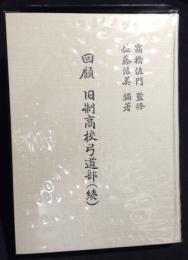 高橋佐門 監修
佐藤浩美 編著
回顧 旧制高校弓道部(続)